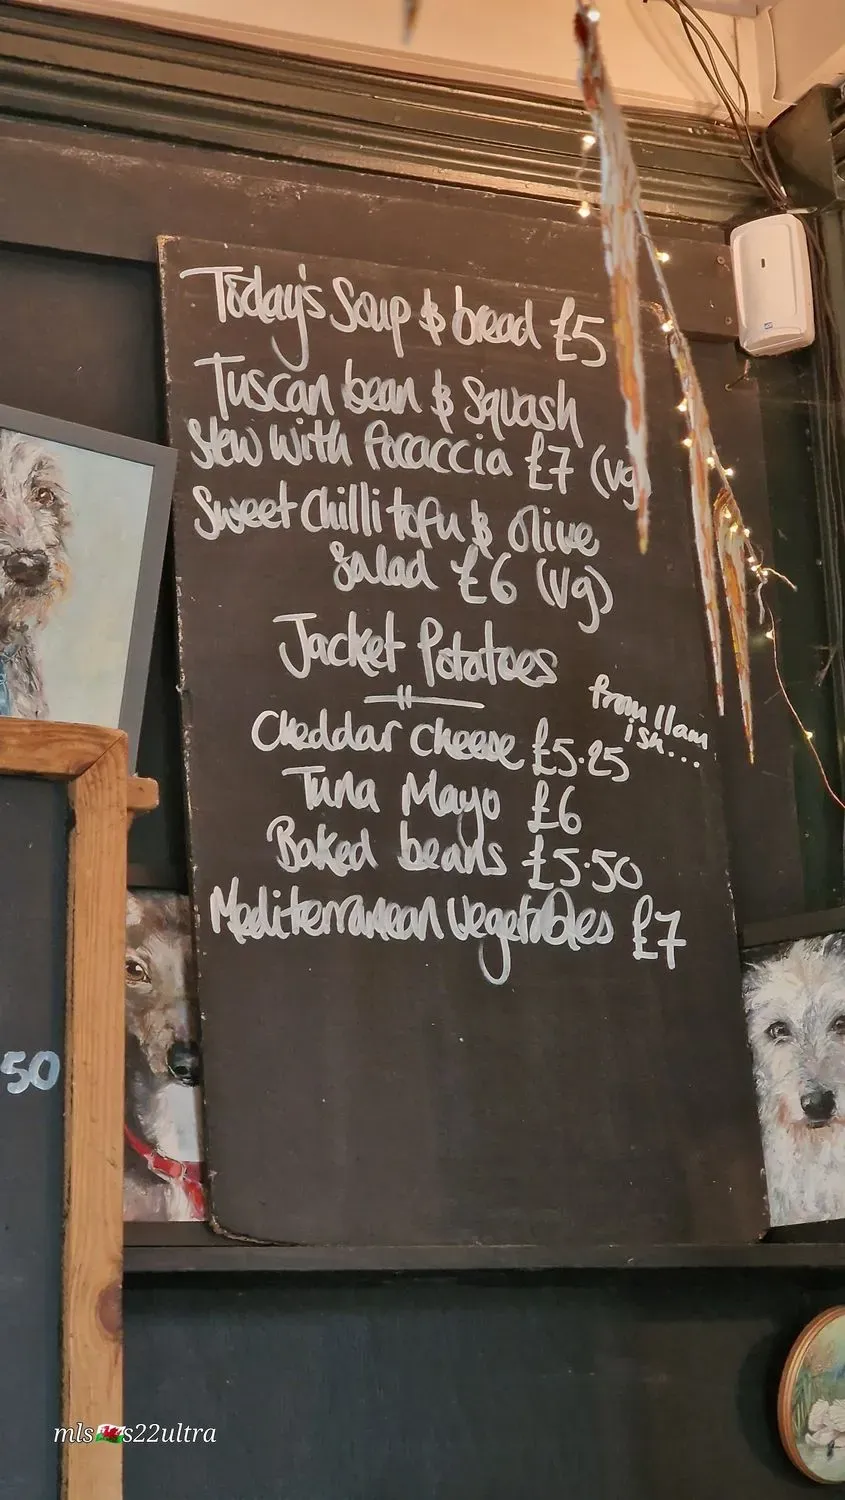 Today's Soup & bread £5
Tuscan bean & Squash
Stew with focaccia £7 (vg)
Sweet Chilli tofu & Olive
Salad £6 (vg)
Jacket Potatoes
from 11am
ish...
Cheddar Cheese £5.25
Tuna Mayo £6
Baked beans £5.50
Mediterranean Vegetables £7
50
mls🏴󠁧󠁢󠁷󠁬󠁳󠁿s22ultra